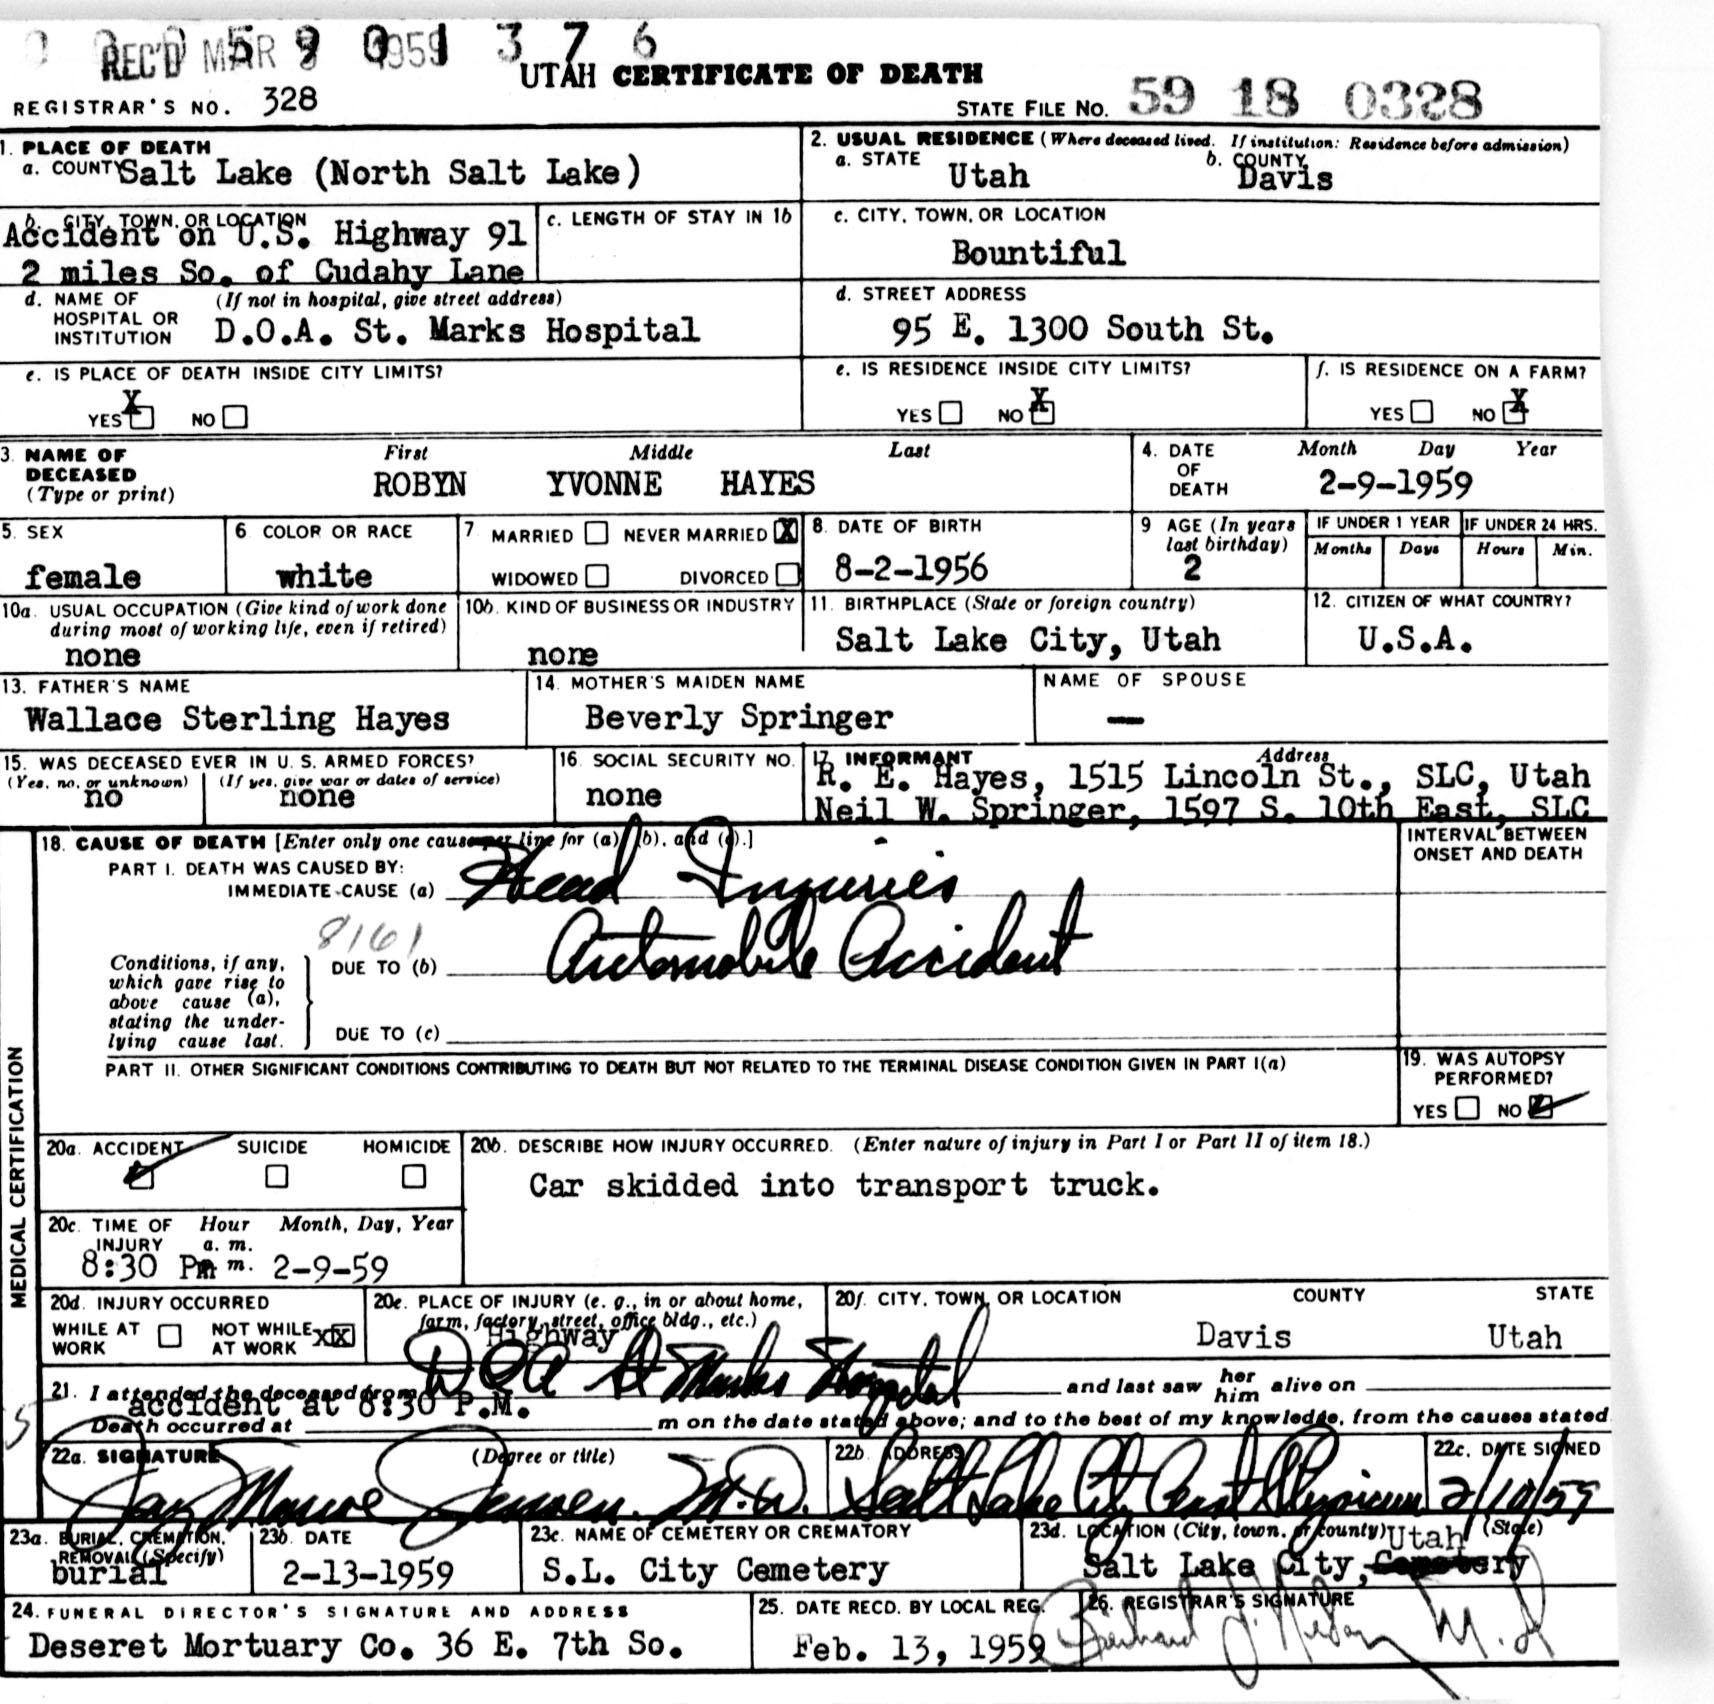 REC'D MAR 9 1959
0 0 0 5 9 0 1 3 7 6
UTAH CERTIFICATE OF DEATH
REGISTRAR'S NO. 328
STATE FILE NO. 59 18 0328
1. PLACE OF DEATH
a. COUNTY Salt Lake (North Salt Lake)
2. USUAL RESIDENCE (Where deceased lived. If institution: Residence before admission)
a. STATE Utah
b. COUNTY Davis
b. CITY, TOWN, OR LOCATION
Accident on U.S. Highway 91
2 miles So. of Cudahy Lane
c. LENGTH OF STAY IN 1b
c. CITY, TOWN, OR LOCATION
Bountiful
d. NAME OF HOSPITAL OR INSTITUTION (If not in hospital, give street address)
D.O.A. St. Marks Hospital
d. STREET ADDRESS
95 E. 1300 South St.
e. IS PLACE OF DEATH INSIDE CITY LIMITS?
YES X NO
e. IS RESIDENCE INSIDE CITY LIMITS?
YES NO X
f. IS RESIDENCE ON A FARM?
YES NO X
3. NAME OF DECEASED (Type or print)
First Middle Last
ROBYN YVONNE HAYES
4. DATE OF DEATH
Month Day Year
2-9-1959
5. SEX
female
6 COLOR OR RACE
white
7 MARRIED NEVER MARRIED X
WIDOWED DIVORCED
8. DATE OF BIRTH
8-2-1956
9 AGE (In years last birthday)
2
IF UNDER 1 YEAR
Months Days
IF UNDER 24 HRS.
Hours Min.
10a. USUAL OCCUPATION (Give kind of work done during most of working life, even if retired)
none
10b. KIND OF BUSINESS OR INDUSTRY
none
11. BIRTHPLACE (State or foreign country)
Salt Lake City, Utah
12. CITIZEN OF WHAT COUNTRY?
U.S.A.
13. FATHER'S NAME
Wallace Sterling Hayes
14. MOTHER'S MAIDEN NAME
Beverly Springer
NAME OF SPOUSE
—
15. WAS DECEASED EVER IN U. S. ARMED FORCES?
(Yes, no, or unknown) (If yes, give war or dates of service)
no none
16. SOCIAL SECURITY NO.
none
17. INFORMANT Address
R. E. Hayes, 1515 Lincoln St., SLC, Utah
Neil W. Springer, 1597 S. 10th East, SLC
MEDICAL CERTIFICATION
18. CAUSE OF DEATH [Enter only one cause per line for (a), (b), and (c).]
INTERVAL BETWEEN ONSET AND DEATH
PART I. DEATH WAS CAUSED BY:
IMMEDIATE CAUSE (a) Head Injuries
8161
Conditions, if any, which gave rise to above cause (a), stating the underlying cause last.
DUE TO (b) Automobile Accident
DUE TO (c)
PART II. OTHER SIGNIFICANT CONDITIONS CONTRIBUTING TO DEATH BUT NOT RELATED TO THE TERMINAL DISEASE CONDITION GIVEN IN PART I(a)
19. WAS AUTOPSY PERFORMED?
YES NO
20a. ACCIDENT SUICIDE HOMICIDE
20b. DESCRIBE HOW INJURY OCCURRED. (Enter nature of injury in Part I or Part II of item 18.)
Car skidded into transport truck.
20c. TIME OF INJURY Hour Month, Day, Year
a. m.
8:30 Pm m. 2-9-59
20d. INJURY OCCURRED
WHILE AT WORK NOT WHILE AT WORK XX
20e. PLACE OF INJURY (e. g., in or about home, farm, factory, street, office bldg., etc.)
Highway
20f. CITY, TOWN, OR LOCATION COUNTY STATE
Davis Utah
21. I attended the deceased from DOA St Marks Hospital and last saw her him alive on
accident at 8:30 P.M.
Death occurred at m on the date stated above; and to the best of my knowledge, from the causes stated
5
22a. SIGNATURE (Degree or title)
Jensen. M.D.
22b. ADDRESS
Salt Lake
22c. DATE SIGNED
2/10/59
23a. BURIAL, CREMATION, REMOVAL (Specify)
burial
23b. DATE
2-13-1959
23c. NAME OF CEMETERY OR CREMATORY
S.L. City Cemetery
23d. LOCATION (City, town, or county) (State)
Utah
Salt Lake City, Cemetery
24. FUNERAL DIRECTOR'S SIGNATURE AND ADDRESS
Deseret Mortuary Co. 36 E. 7th So.
25. DATE RECD. BY LOCAL REG.
Feb. 13, 1959
26. REGISTRAR'S SIGNATURE